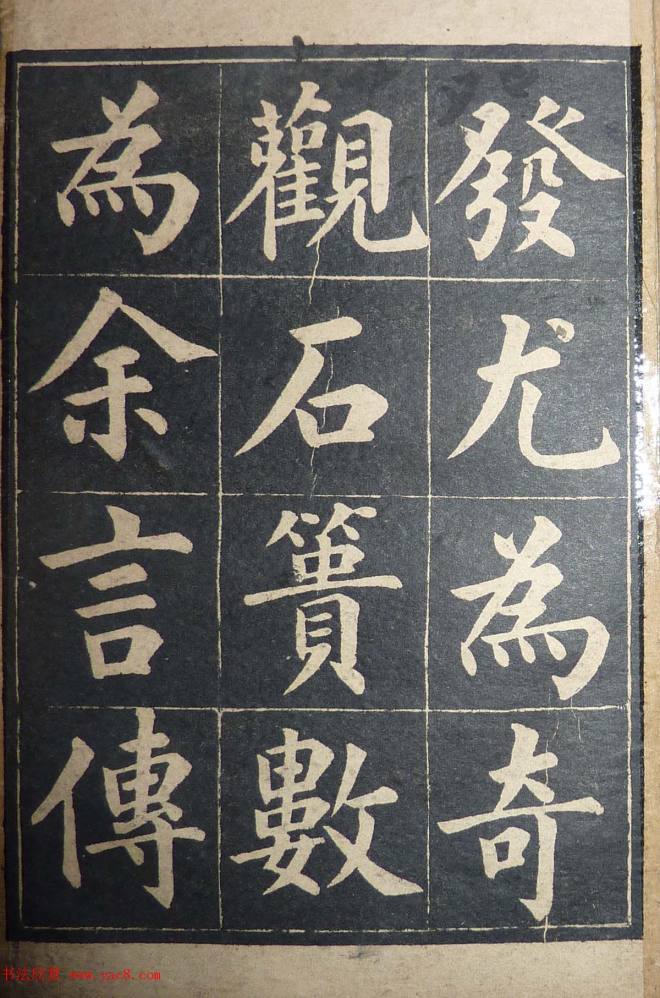 發尤為奇
觀石簣數
為余言傳
书法欣赏 www.yac8.com